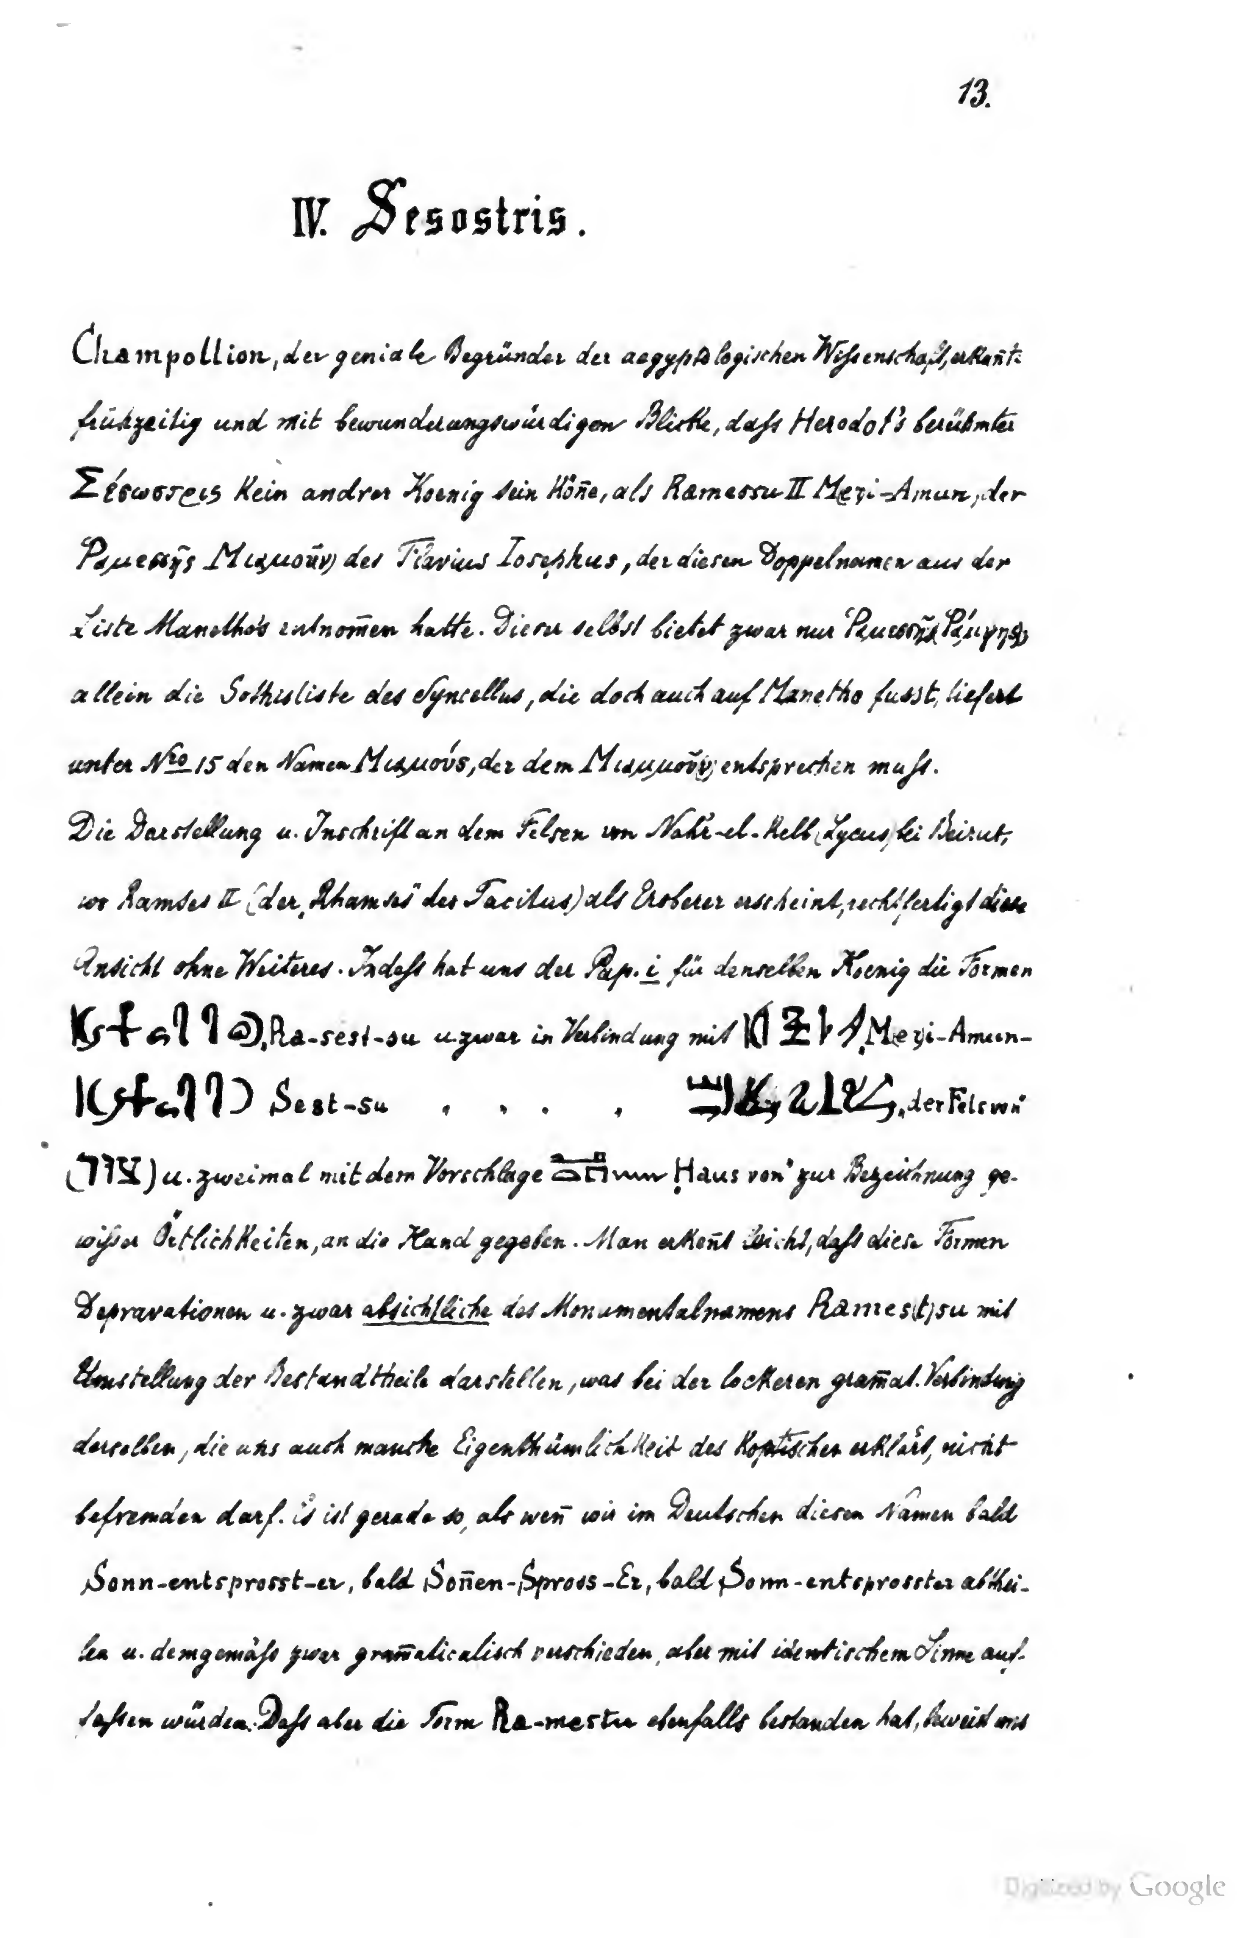 13.
IV. Sesostris.
Champollion, der geniale Begründer der aegyptologischen Wissenschaft, erkañte
frühzeitig und mit bewunderungswürdigem Blicke, daſs Herodot's berühmter
Σέσωστρις Kein andrer Koenig sein Köñe, als Ramessu II Meri-Amun, der
Ῥαμεσσῆς Μιαμοῦν des Flavius Iosephus, der diesen Doppelnamen aus der
Liste Manetho's entnom̄en hatte. Dieser selbst bietet zwar nur Ῥαμεσσῆς
allein die Sothisliste des Syncellus, die doch auch auf Manetho fusst, liefert
unter Nro 15 den Namen Μιαμούς, der dem Μιαμμοῦν entsprechen muſs.
Die Darstellung u. Inschrift an dem Felsen von Nahr-el-Kelb (Lycus) bei Beirut,
wo Ramses II (der „Rhamses" des Tacitus) als Eroberer erscheint, rechtfertigt diese
Ansicht ohne Weiteres. Indeſs hat uns der Pap. i für denselben Koenig die Formen
Ra-sest-su u. zwar in Verbindung mit Meri-Amun-
Sest-su . . . . „der Fels von"
(צור) u. zweimal mit dem Vorschlage „Haus von" zur Bezeichnung ge-
wiſser ÖrtlichKeiten, an die Hand gegeben. Man erKeñt leicht, daſs diese Formen
Depravationen u. zwar absichtliche des Monumentalnamens Rames(t)su mit
Umstellung der Bestandtheile darstellen, was bei der lockeren gram̄at. Verbindung
derselben, die uns auch manche EigenthümlichKeit des Koptischen erklärt, nicht
befremden darf. Es ist gerade so, als weñ wir im Deutschen diesen Namen bald
Sonn-entsprosst-er, bald Soñen-Spross-Er, bald Sonn-entsprosster abthei-
len u. demgemäſs zwar gram̄aticalisch verschieden, aber mit identischem Sinne auf-
faſsen würden. Daſs aber die Form Ra-mestu ebenfalls bestanden hat, beweist uns
Digitized by Google